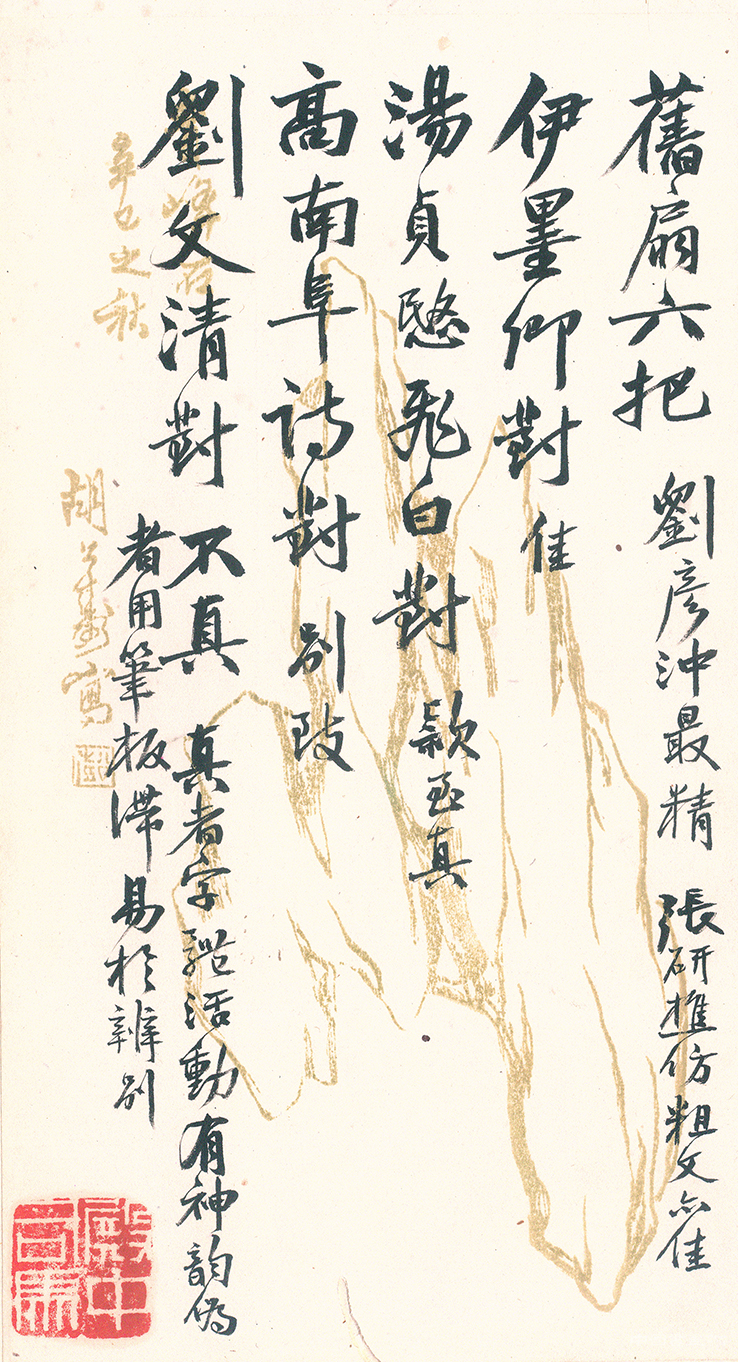 舊扇六把 劉彥沖最精 張研樵仿粗文亦佳
伊墨卿對 佳
湯貞愍飛白對 款至真
高南阜詩對 別致
劉文清對 不真 真者字體活動有神韵偽
者用筆板滯易於辨別
峰石
辛巳之秋
胡 寫
殿中司馬